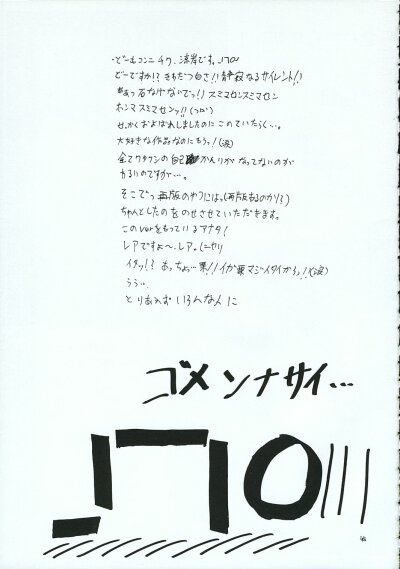 ・どーもコンニチワ、涼岸です。_| ̄|○
どーですか!? きもだつ白さ!! 静寂なるサイレント!!
もあっ石なげないでっ!! スミマセンスミマセン
ホンマスミマセンッ!! (つд)
せっかくおよばれしましたのにこのていたらく…。
大好きな作品なのにもうっ! (涙)
全てワタクシの自己かんりがなってないのが
わるいのですが…。
そこでっ再版のやつには。(再版するのか!?)
ちゃんとしたのをのせさせていただきます。
このverをもっているアナタ!
レアですよ〜。レア。(ニヤリ
イタッ!? あっちょ…栗!! イガ栗マジイタイから!! (涙)
ううぃ…
とりあえずいろんな人に
ゴメンナサイ…
_| ̄|○|||